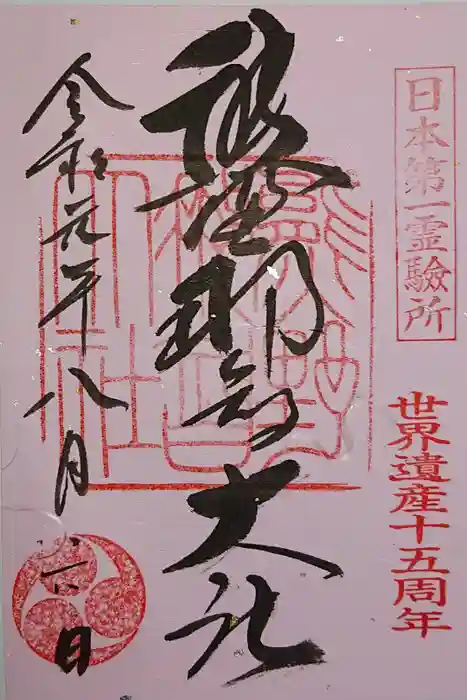 日本第一霊験所
世界遺産十五周年
熊野那智大社
令和元年八月
日